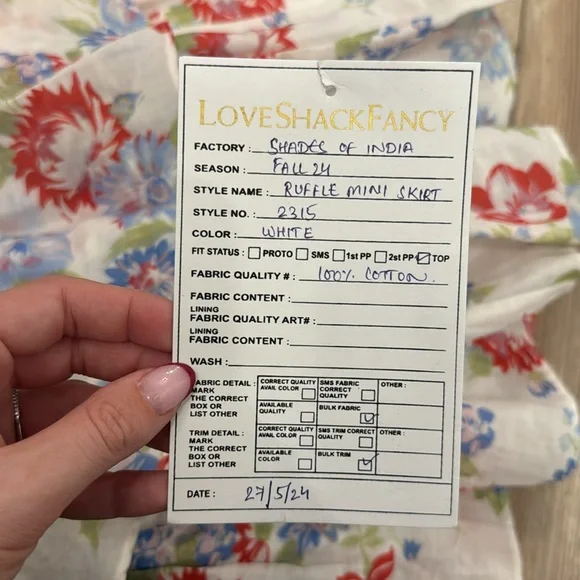 LOVESHACKFANCY
FACTORY : SHADES OF INDIA
SEASON : FALL 24
STYLE NAME : RUFFLE MINI SKIRT
STYLE NO. : 2315
COLOR : WHITE
FIT STATUS : PROTO SMS 1st PP 2st PP TOP
FABRIC QUALITY # : 100% COTTON.
FABRIC CONTENT :
LINING
FABRIC QUALITY ART# :
LINING
FABRIC CONTENT :
WASH :
FABRIC DETAIL : CORRECT QUALITY SMS FABRIC OTHER :
MARK AVAIL COLOR CORRECT
THE CORRECT QUALITY
BOX OR AVAILABLE BULK FABRIC
LIST OTHER QUALITY
TRIM DETAIL : CORRECT QUALITY SMS TRIM CORRECT OTHER :
MARK AVAIL COLOR QUALITY
THE CORRECT
BOX OR AVAILABLE BULK TRIM
LIST OTHER COLOR
DATE : 27/5/24